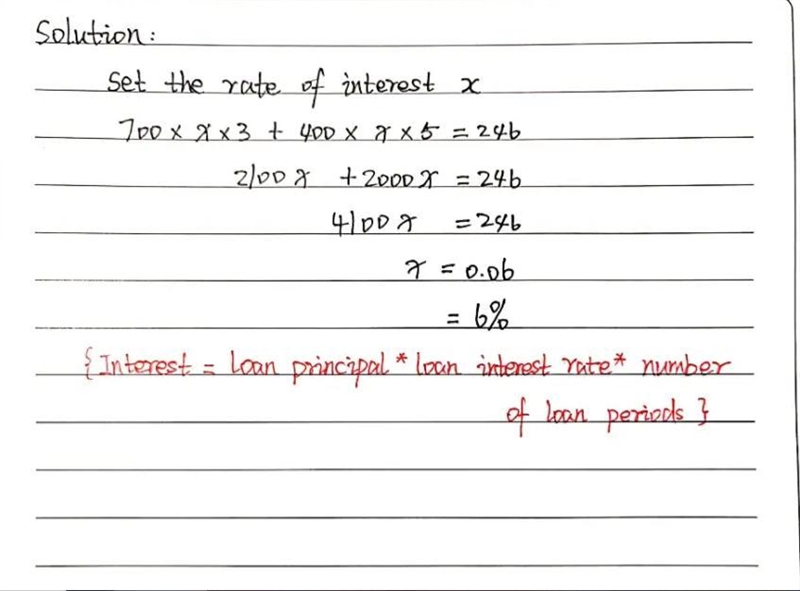 Solution:
Set the rate of interest x
700 × x × 3 + 400 × x × 5 = 246
2100x + 2000x = 246
4100x = 246
x = 0.06
= 6%
{Interest = loan principal * loan interest rate * number
of loan periods}